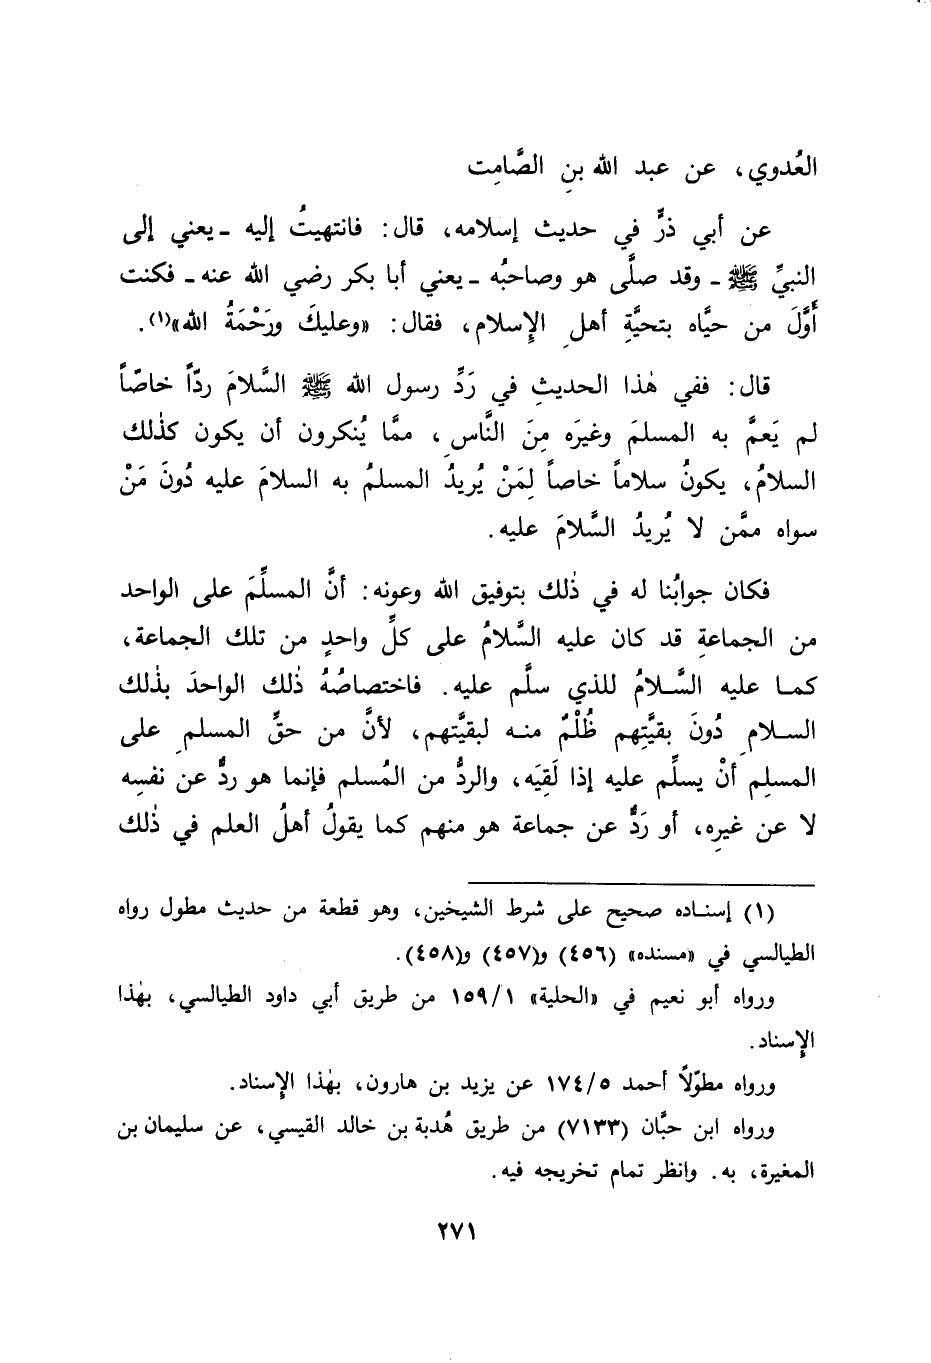 العُدوي، عن عبد الله بنِ الصَّامِت
عن أبي ذرٍّ في حديث إسلامه، قال: فانتهيتُ إليه ـ يعني إلى
النبيِّ ﷺ ـ وقد صلَّى هو وصاحبُه ـ يعني أبا بكر رضي الله عنه ـ فكنت
أَوَّلَ من حيَّاه بتحيَّةِ أهلِ الإِسلام، فقال: «وعليكَ ورَحْمَةُ الله»(١).
قال: ففي هٰذا الحديثِ في رَدِّ رسول الله ﷺ السَّلامَ ردّاً خاصّاً
لم يَعمَّ به المسلمَ وغيرَه مِنَ النَّاسِ، ممَّا يُنكرون أن يكون كذٰلك
السلامُ، يكونُ سلاماً خاصاً لِمَنْ يُريدُ المسلمُ به السلامَ عليه دُونَ مَنْ
سواه ممَّن لا يُريدُ السَّلامَ عليه.
فكان جوابُنا له في ذٰلك بتوفيق الله وعونه: أنَّ المسلِّمَ على الواحد
من الجماعةِ قد كان عليه السَّلامُ على كلِّ واحدٍ من تلك الجماعة،
كما عليه السَّلامُ للذي سلَّم عليه. فاختصاصُهُ ذٰلك الواحدَ بذٰلك
السلامِ دُونَ بقيَّتِهم ظُلْمٌ منه لبقيَّتهم، لأنَّ من حقِّ المسلمِ على
المسلِمِ أنْ يسلِّم عليه إذا لَقِيَه، والردُّ من المُسلم فإنما هو ردٌّ عن نفسِه
لا عن غيرِه، أو رَدٌّ عن جماعة هو منهم كما يقولُ أهلُ العلم في ذٰلك
(١) إسناده صحيح على شرط الشيخين، وهو قطعة من حديث مطول رواه
الطيالسي في «مسنده» (٤٥٦) و(٤٥٧) و(٤٥٨).
ورواه أبو نعيم في «الحلية» ١٥٩/١ من طريق أبي داود الطيالسي، بهٰذا
الإِسناد.
ورواه مطوّلاً أحمد ١٧٤/٥ عن يزيد بن هارون، بهٰذا الإِسناد.
ورواه ابن حبَّان (٧١٣٣) من طريق هُدبة بن خالد القيسي، عن سليمان بن
المغيرة، به. وانظر تمام تخريجه فيه.
٢٧١